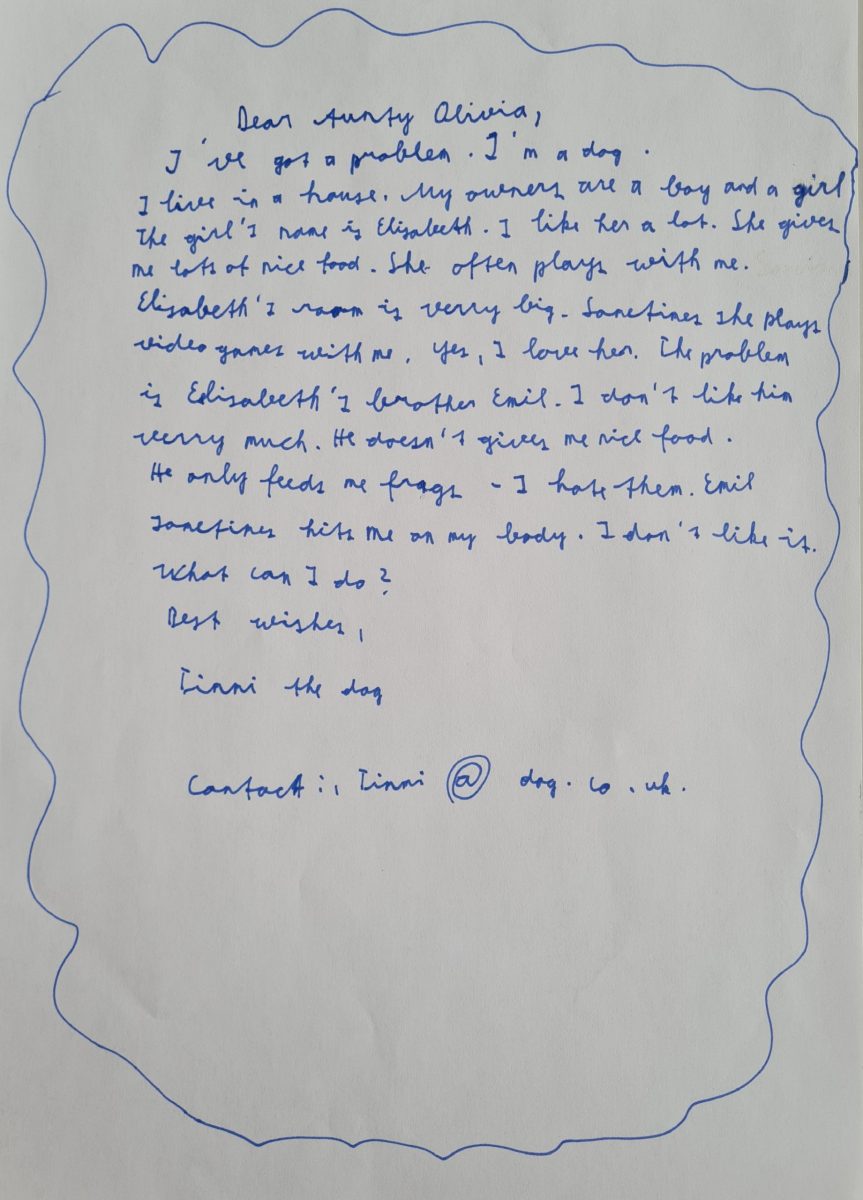 Dear Aunty Olivia,
I've got a problem. I'm a dog.
I live in a house. My owners are a boy and a girl
The girl's name is Elisabeth. I like her a lot. She gives
me lots of nice food. She often plays with me.
Elisabeth's room is verry big. Sometimes she plays
video games with me. Yes, I love her. The problem
is Elisabeth's brother Emil. I don't like him
verry much. He doesn't gives me nice food.
He only feeds me frogs - I hate them. Emil
sometimes hits me on my body. I don't like it.
What can I do?
Best wishes,
Tinni the dog
Contact:, Tinni @ dog.co.uk.